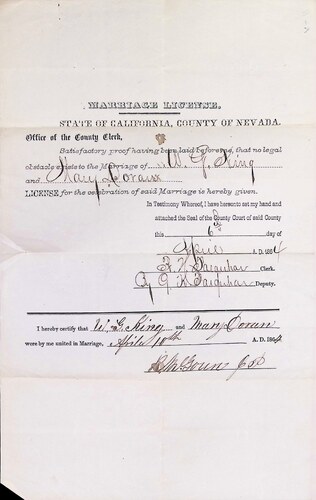 MARRIAGE LICENSE,
STATE OF CALIFORNIA, COUNTY OF NEVADA.
Office of the County Clerk,
Satisfactory proof having been laid before me, that no legal
obstacle exists to the Marriage of W. G. King
and Mary
LICENSE for the celebration of said Marriage is hereby given.
In Testimony Whereof, I have hereunto set my hand and
attached the Seal of the County Court of said County
this 6th day of
April A. D. 1864
Farquhar Clerk.
By G K Farquhar Deputy.
I hereby certify that W. G. King and Mary Doran
were by me united in Marriage, April 10th A. D. 1864